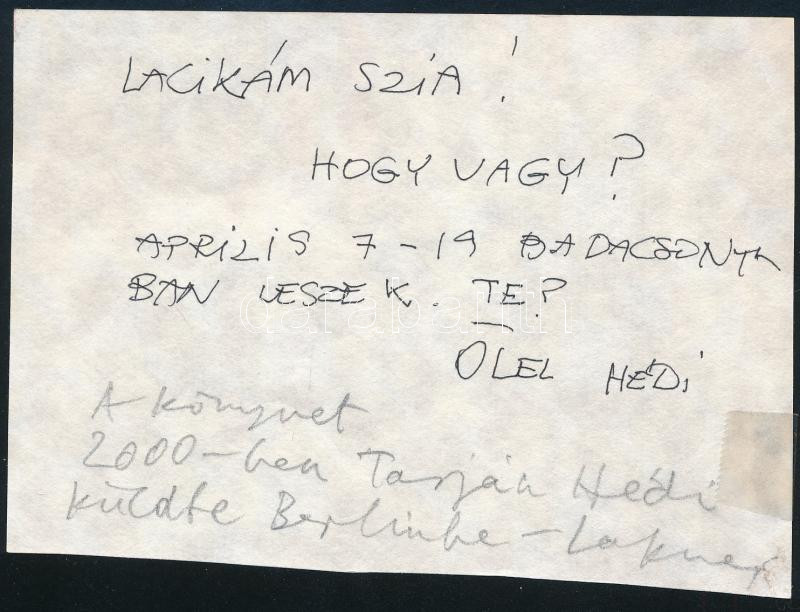 LACIKÁM SZIA!
HOGY VAGY?
APRILIS 7-19 BADACSONYK
BAN LESZEK. TE?
ÖLEL HÉDI
A könyvet
2000-ben Tarján Hédi
küldte Berlinbe - Lakner
darabanth